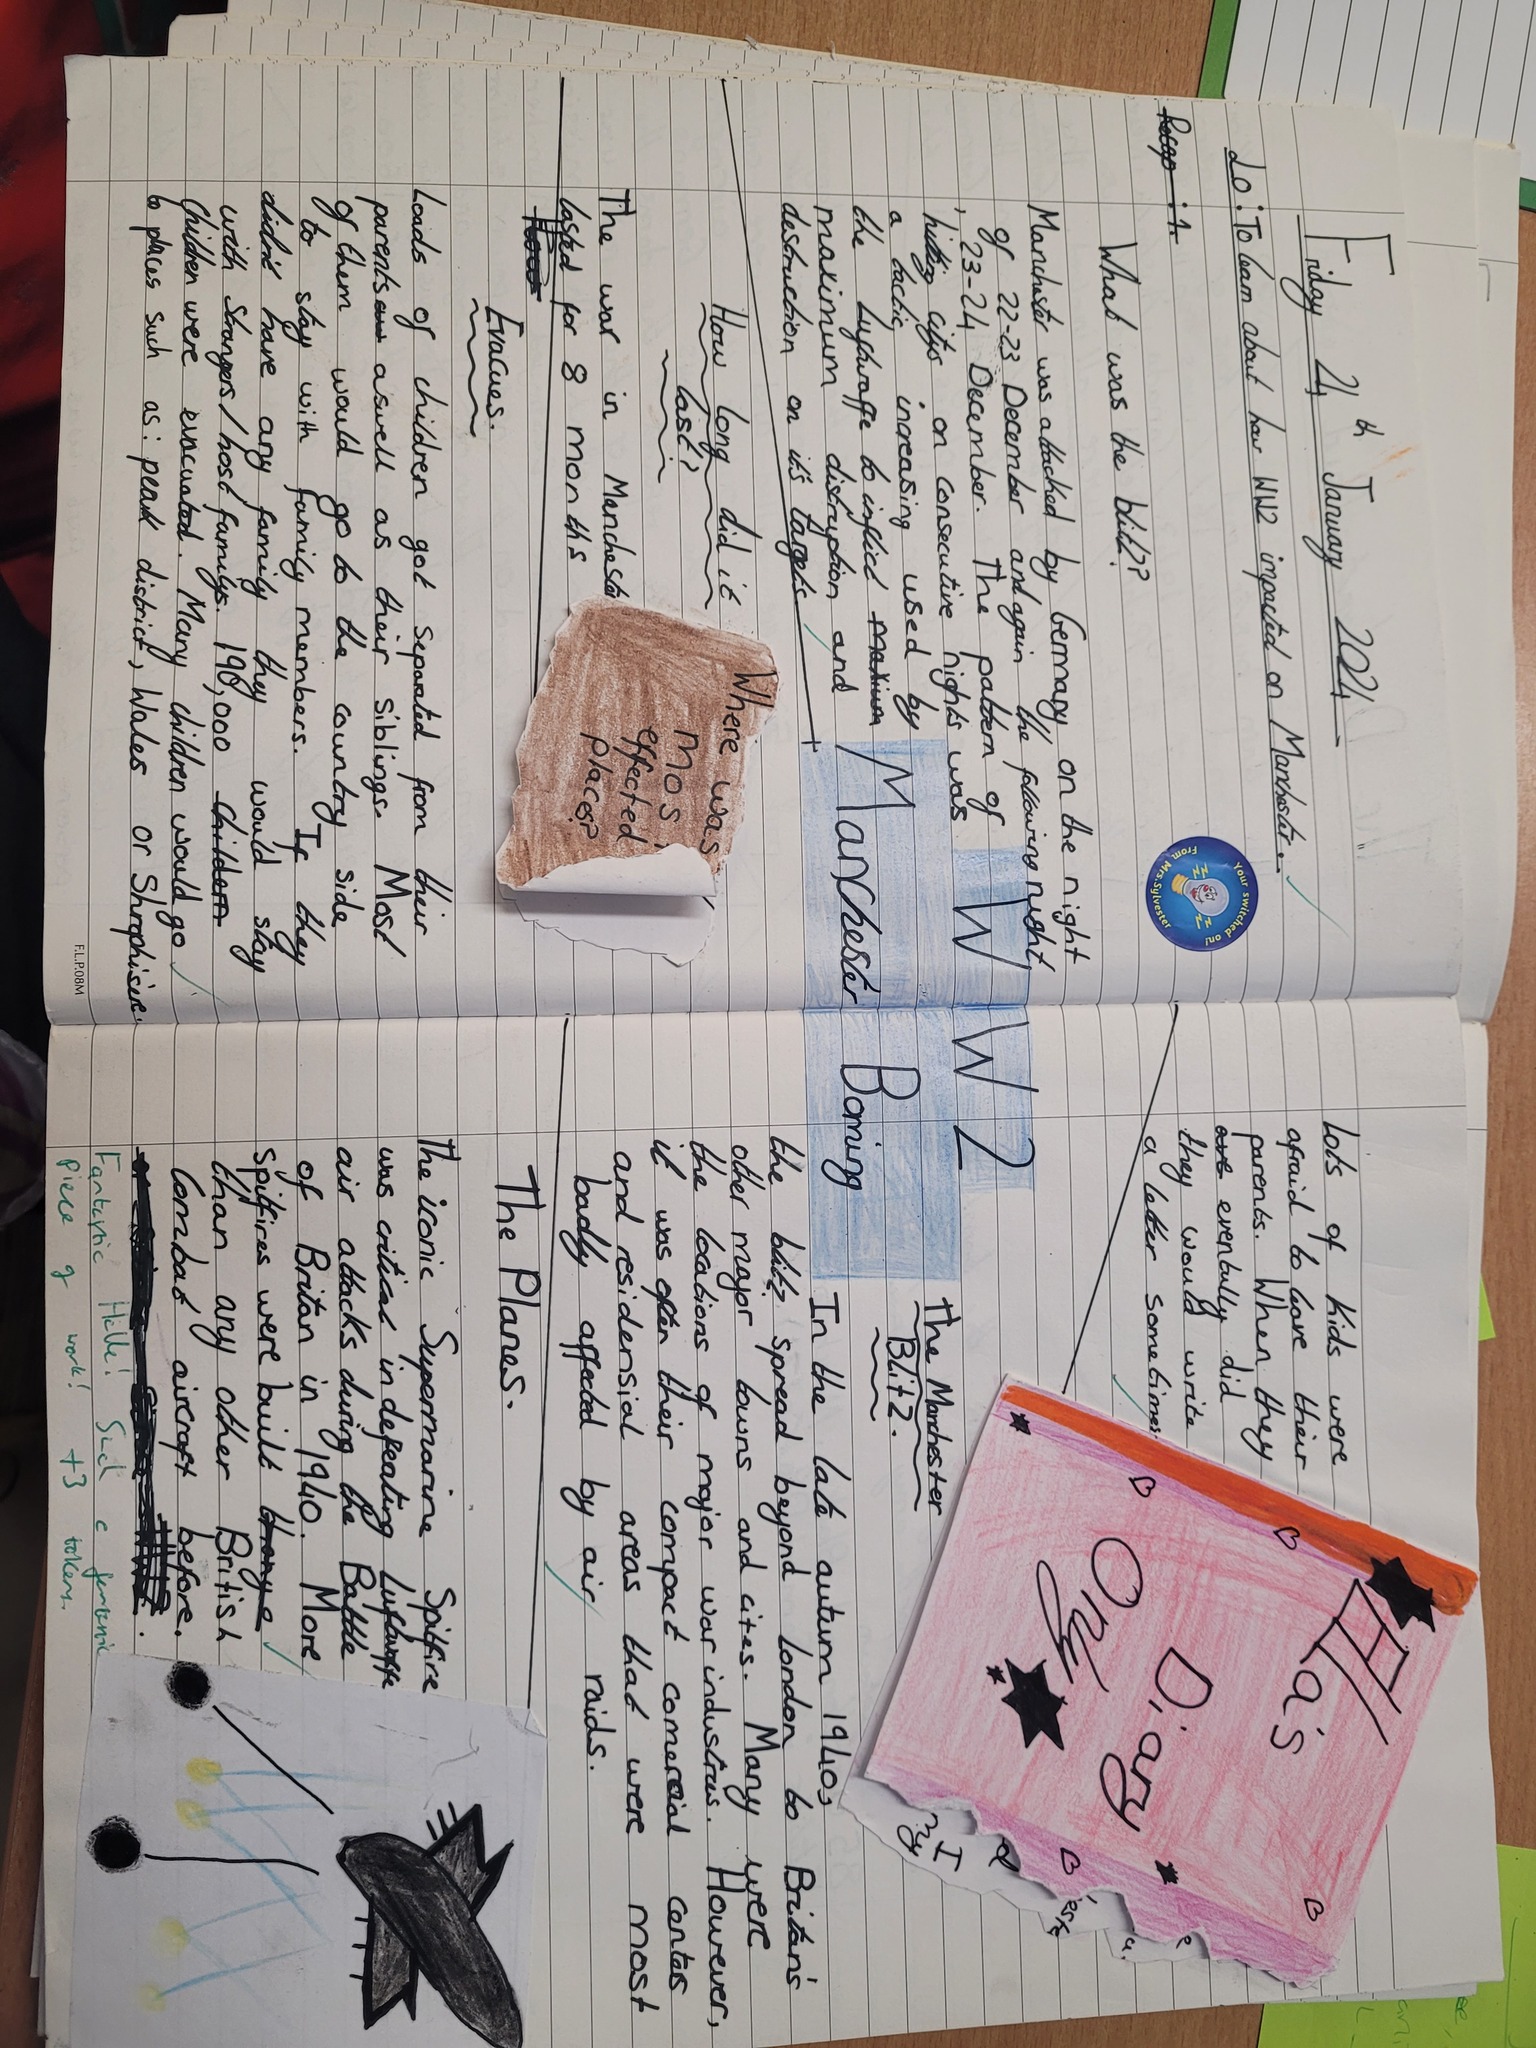 Friday 24th January 2024
LO: To learn about how WW2 impacted on Manchester...
Recap: 1.
Your switched on!
From Mrs.Sylvester
What was the blitz?
Manchester was attacked by Germany on the night
of 22-23 December and again the following night
, 23-24 December. The pattern of
hitting citys on consecutive nights was
a tactic increasing used by
the Lughwaffe to inflict maxium
maximum distruption and
destruction on it's targets
WW2
Manchester Boming
How long did it
last?
The war in Manchester
lasted for 8 months
Where was
mos
effected
places?
Evacues.
Loads of children got separated from their
parents aswell as their siblings. Most
of them would go to the country side
to stay with family members. If they
didn't have any family they would stay
with strangers/host familys. 190,000 childern
Children were evacuated. Many children would go
to places such as: peak district, Wales or Shrophisere.
F.L.P.08M
Lots of kids were
afraid to leave their
parents. When they
eventually did
they would write
a letter sometimes.
Ha's
Diary
Only
I
my
The Manchester
Blitz.
In the late autumn 1940s
the blitz spread beyond london to Britan's
other major towns and cites. Many were
the locations of major war industrus. However,
it was often their compact comercial centes
and residensial areas that were most
badly affected by air raids.
The Planes.
The iconic Supermarine Spitfire
was critical in defeating Luftwaffe
air attacks during the Battle
of Britan in 1940. More
Spitfires were build
than any other British
Combat aircraft before.
Fantastic Halle! Such a fantastic
piece of work! +3 tokens.